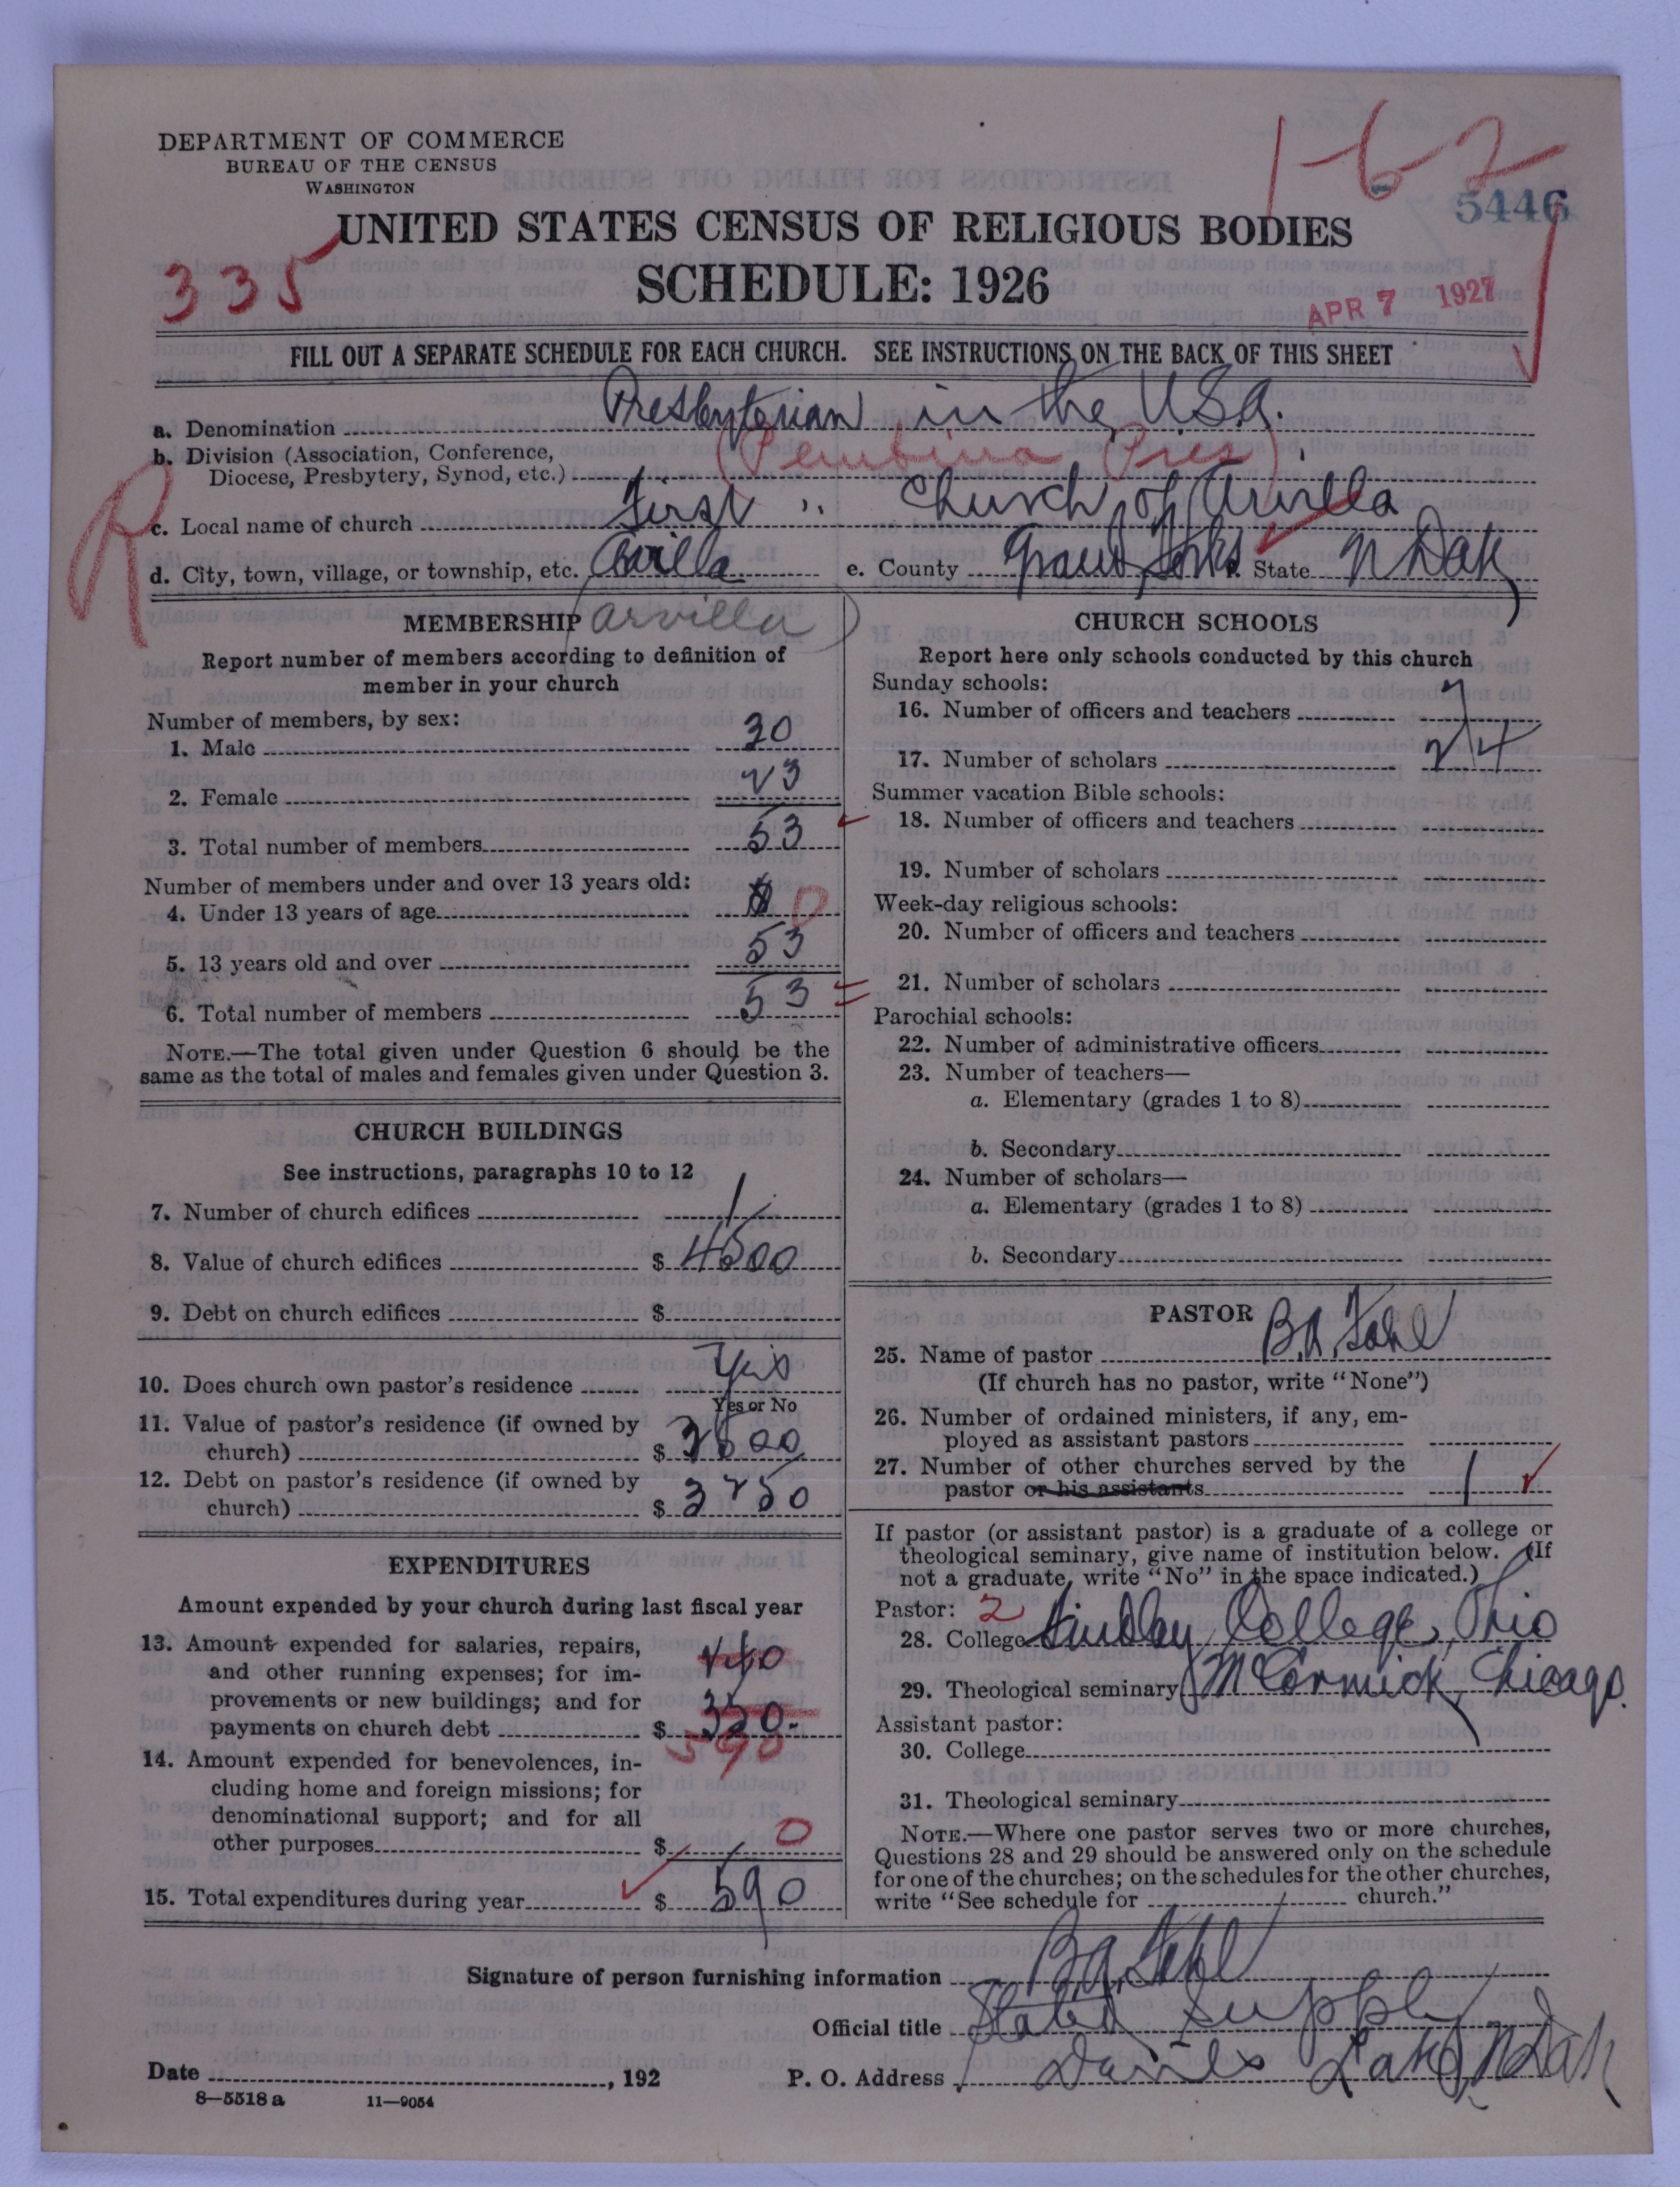 DEPARTMENT OF COMMERCE
BUREAU OF THE CENSUS
WASHINGTON
1-62
5446
UNITED STATES CENSUS OF RELIGIOUS BODIES
335
SCHEDULE: 1926
APR 7 1927
FILL OUT A SEPARATE SCHEDULE FOR EACH CHURCH. SEE INSTRUCTIONS ON THE BACK OF THIS SHEET
a. Denomination Presbyterian in the U.S.A.
b. Division (Association, Conference,
Diocese, Presbytery, Synod, etc.) (Pembina Pres)
R
c. Local name of church First " Church of Arvilla
d. City, town, village, or township, etc. Arvilla e. County Grand Forks f. State N Dak
MEMBERSHIP (Arvilla)
Report number of members according to definition of
member in your church
Number of members, by sex:
1. Male 30
2. Female 23
3. Total number of members 53
Number of members under and over 13 years old:
4. Under 13 years of age 0
5. 13 years old and over 53
6. Total number of members 53
NOTE.—The total given under Question 6 should be the
same as the total of males and females given under Question 3.
CHURCH BUILDINGS
See instructions, paragraphs 10 to 12
7. Number of church edifices 1
8. Value of church edifices $ 4500
9. Debt on church edifices $
10. Does church own pastor's residence Yes
Yes or No
11. Value of pastor's residence (if owned by
church) $ 3500
12. Debt on pastor's residence (if owned by
church) $ 3250
EXPENDITURES
Amount expended by your church during last fiscal year
13. Amount expended for salaries, repairs,
and other running expenses; for im-
provements or new buildings; and for
payments on church debt $ 350.
590
14. Amount expended for benevolences, in-
cluding home and foreign missions; for
denominational support; and for all
other purposes $ 0
15. Total expenditures during year $ 590
CHURCH SCHOOLS
Report here only schools conducted by this church
Sunday schools:
16. Number of officers and teachers 7
17. Number of scholars 24
Summer vacation Bible schools:
18. Number of officers and teachers
19. Number of scholars
Week-day religious schools:
20. Number of officers and teachers
21. Number of scholars
Parochial schools:
22. Number of administrative officers
23. Number of teachers—
a. Elementary (grades 1 to 8)
b. Secondary
24. Number of scholars—
a. Elementary (grades 1 to 8)
b. Secondary
PASTOR
25. Name of pastor B.A. Fahl
(If church has no pastor, write "None")
26. Number of ordained ministers, if any, em-
ployed as assistant pastors
27. Number of other churches served by the
pastor or his assistants 1
If pastor (or assistant pastor) is a graduate of a college or
theological seminary, give name of institution below. (If
not a graduate, write "No" in the space indicated.)
Pastor: 2
28. College Findlay College, Ohio
29. Theological seminary McCormick, Chicago.
Assistant pastor:
30. College
31. Theological seminary
NOTE.—Where one pastor serves two or more churches,
Questions 28 and 29 should be answered only on the schedule
for one of the churches; on the schedules for the other churches,
write "See schedule for church."
Signature of person furnishing information B.A. Fahl
Official title Stated Supply
Date , 192
P. O. Address Devils Lake, N Dak
8—5518 a 11—9054